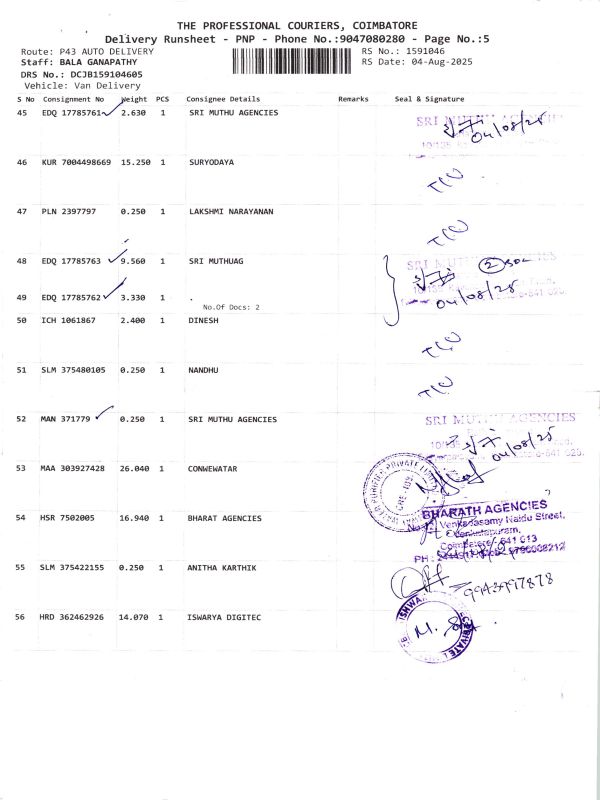 THE PROFESSIONAL COURIERS, COIMBATORE
Delivery Runsheet - PNP - Phone No.:9047080280 - Page No.:5
Route: P43 AUTO DELIVERY RS No.: 1591046
Staff: BALA GANAPATHY RS Date: 04-Aug-2025
DRS No.: DCJB159104605
Vehicle: Van Delivery
S No Consignment No Weight PCS Consignee Details Remarks Seal & Signature
45 EDQ 17785761 2.630 1 SRI MUTHU AGENCIES SRI MUTHU AGENCIES
04/08/25
46 KUR 7004498669 15.250 1 SURYODAYA
47 PLN 2397797 0.250 1 LAKSHMI NARAYANAN
48 EDQ 17785763 9.560 1 SRI MUTHUAG
49 EDQ 17785762 3.330 1 . 04/08/25
No.Of Docs: 2
50 ICH 1061867 2.400 1 DINESH
51 SLM 375480105 0.250 1 NANDHU
52 MAN 371779 0.250 1 SRI MUTHU AGENCIES SRI MUTHU AGENCIES
04/08/25
53 MAA 303927428 26.040 1 CONWEWATAR
54 HSR 7502005 16.940 1 BHARAT AGENCIES BHARATH AGENCIES
Venkadasamy Naidu Street,
55 SLM 375422155 0.250 1 ANITHA KARTHIK
56 HRD 362462926 14.070 1 ISWARYA DIGITEC